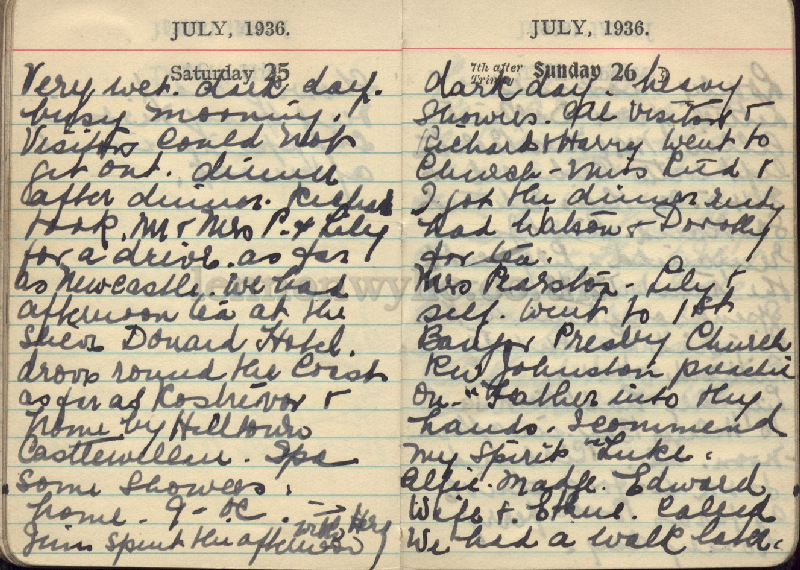 JULY, 1936.
Saturday 25
Very wet. dark day.
busy morning.
Visitors could not
get out. dinner
after dinner. Richard
took, Mr & Mrs P. & Lily
for a drive. as far
as Newcastle. we had
afternoon tea at the
Slieve Donard Hotel.
drove round the Coast
as far as Rostrevor &
home by Hilltown
Castlewellan. Spa
Some Showers.
home - 9 - oc.
Jim spent the afternoon with Harry
JULY, 1936.
7th after Trinity
Sunday 26
dark day. heavy
Showers. All Visitors &
Richard & Harry went to
Church - Miss Reid &
I got the dinner ready
had Watson & Dorothy
for tea.
Mrs Pearston - Lily &
self. went to 1st
Bangor Presby Church
Rev Johnston preached
on - "Father into thy
hands. I commend
my Spirit" Luke.
Alfie. Madge. Edward
Wife &. Called
We had a walk later.